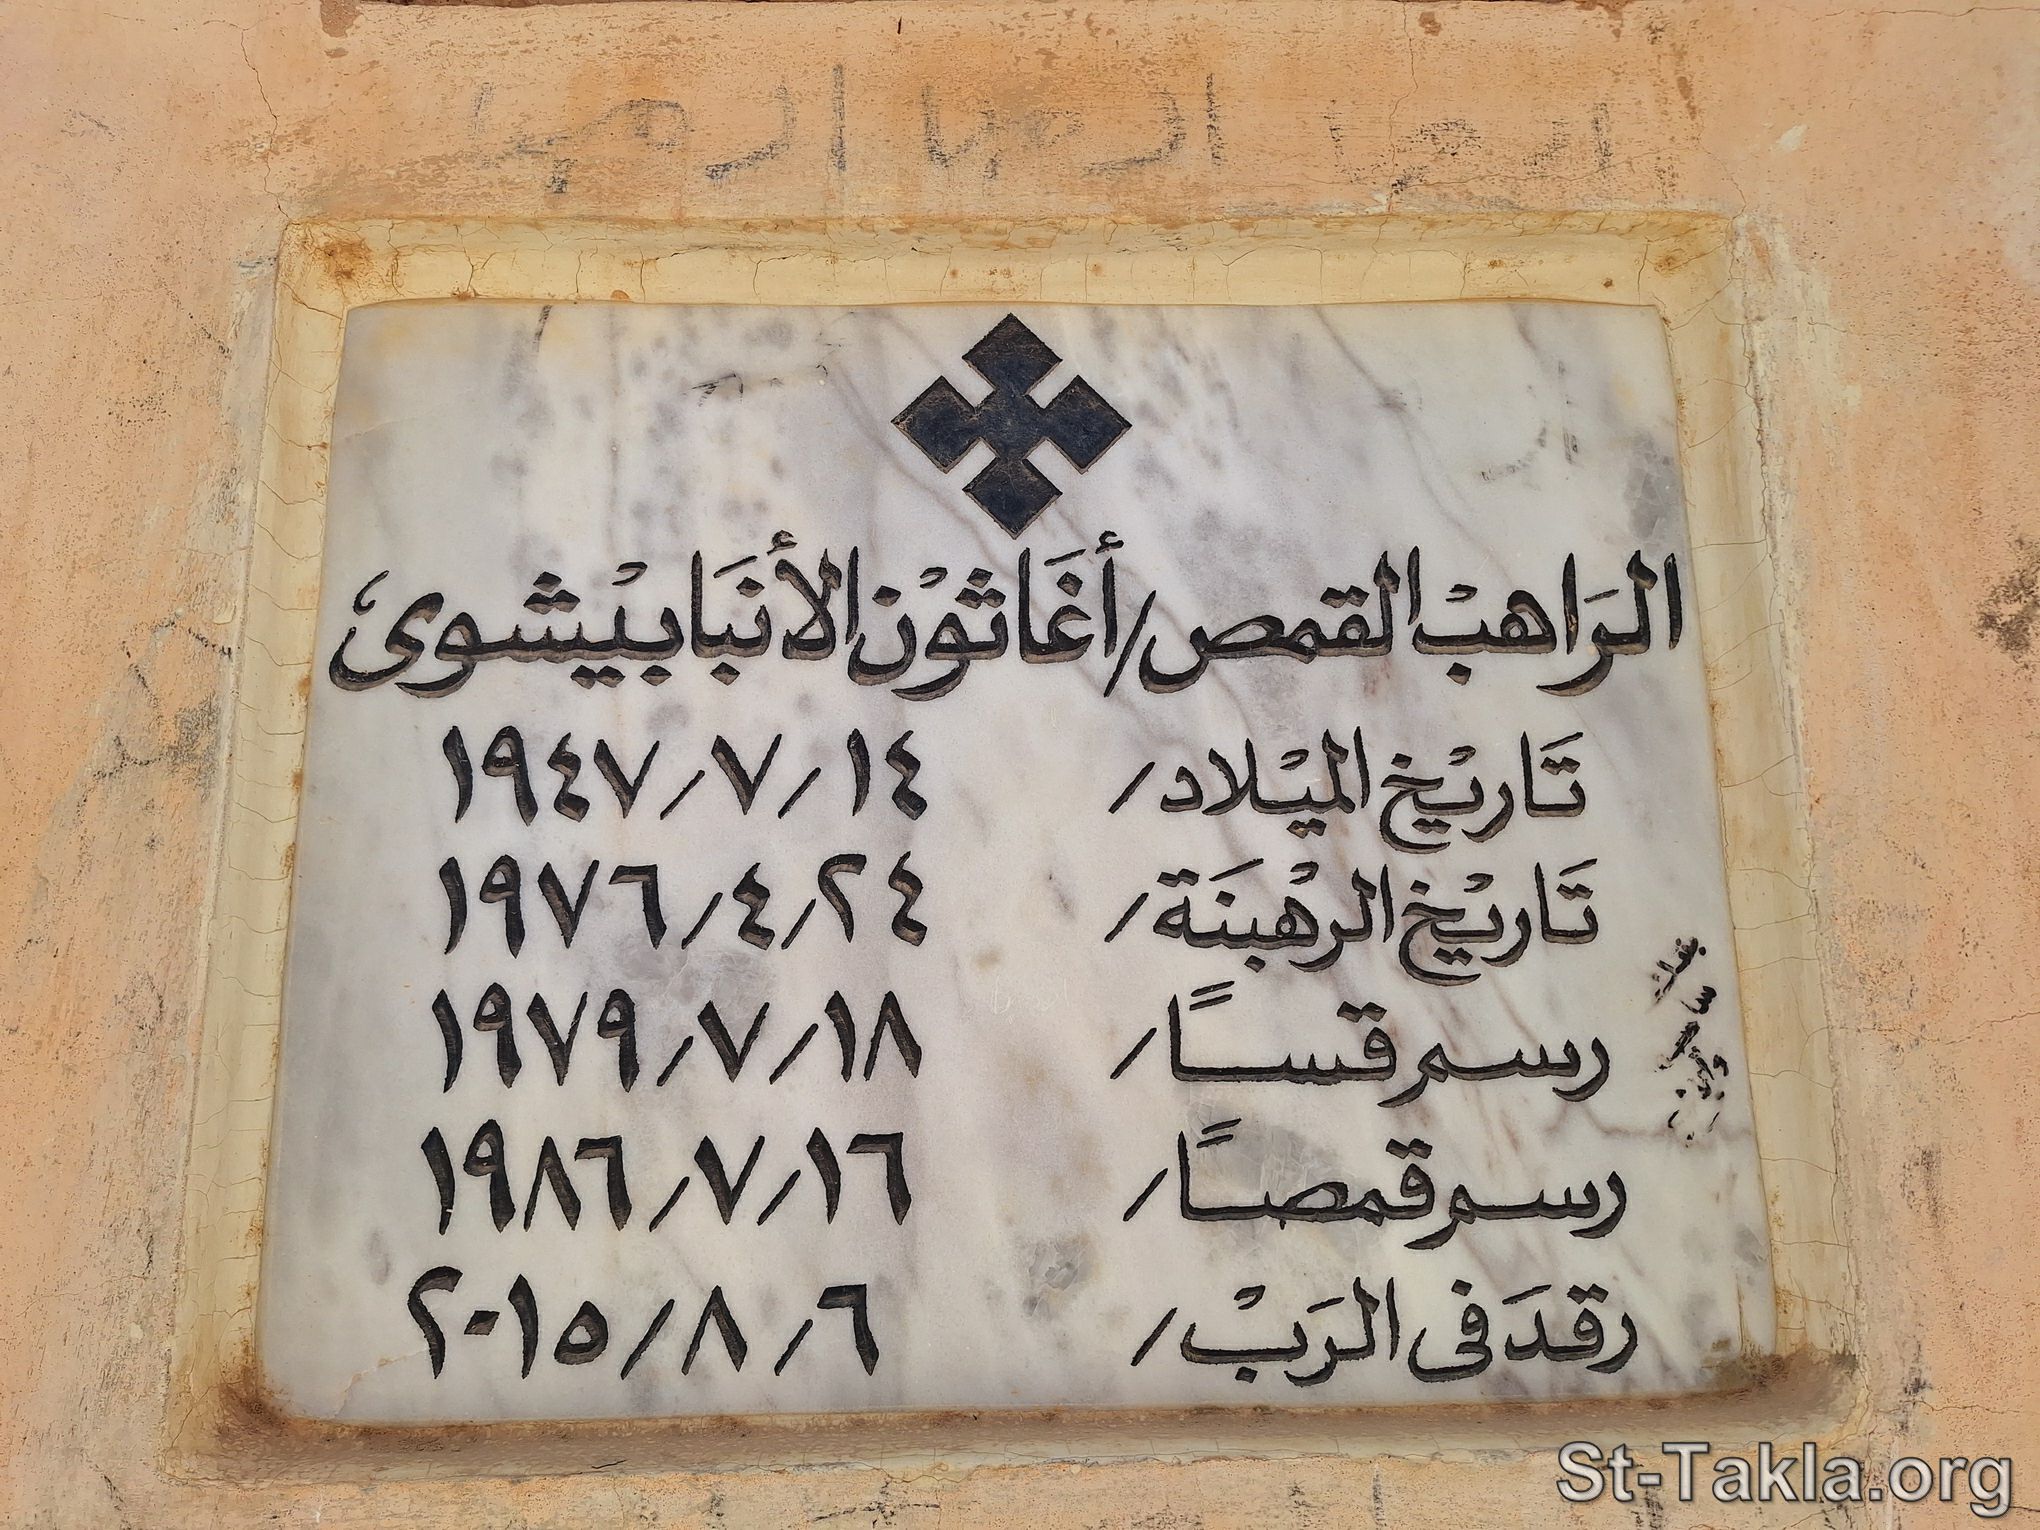 الرَاهبْ القمص / أغَاثوْن الأنبَا بيْشوى
تَاريْخ الميْلاد / ١٤ / ٧ / ١٩٤٧
تَاريْخ الرهْبنَة / ٢٤ / ٤ / ١٩٧٦
رسم قساً / ١٨ / ٧ / ١٩٧٩
رسم قمصاً / ١٦ / ٧ / ١٩٨٦
رقدَ فى الرَبْ / ٦ / ٨ / ٢٠١٥
St-Takla.org